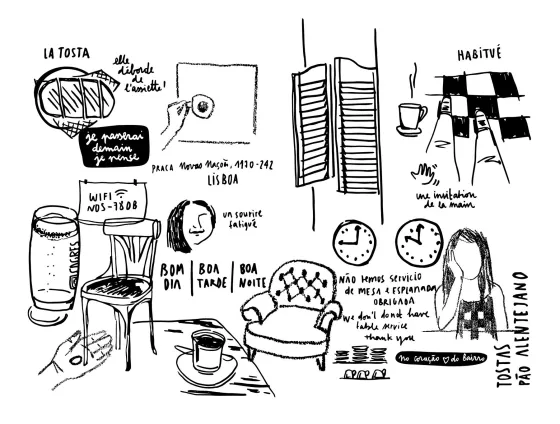 LA TOSTA
elle
déborde
de
l'assiette!
je passerai
demain
je pense
HABITUÉ
PRACA Novas Naçoñ, 1990-242
LISBOA
une invitation
de la main
WIFI
NOS-780B
SAGRES
un sourire
fatigué
BOM
DIA
BOA
TARDE
BOA
NOITE
NÃO temos servicio
de MESA e ESPLANADA
OBRIGADA
We don't do not have
table service
thank you
no coração do Bairro
TOSTAS
PÃO ALENTEJANO